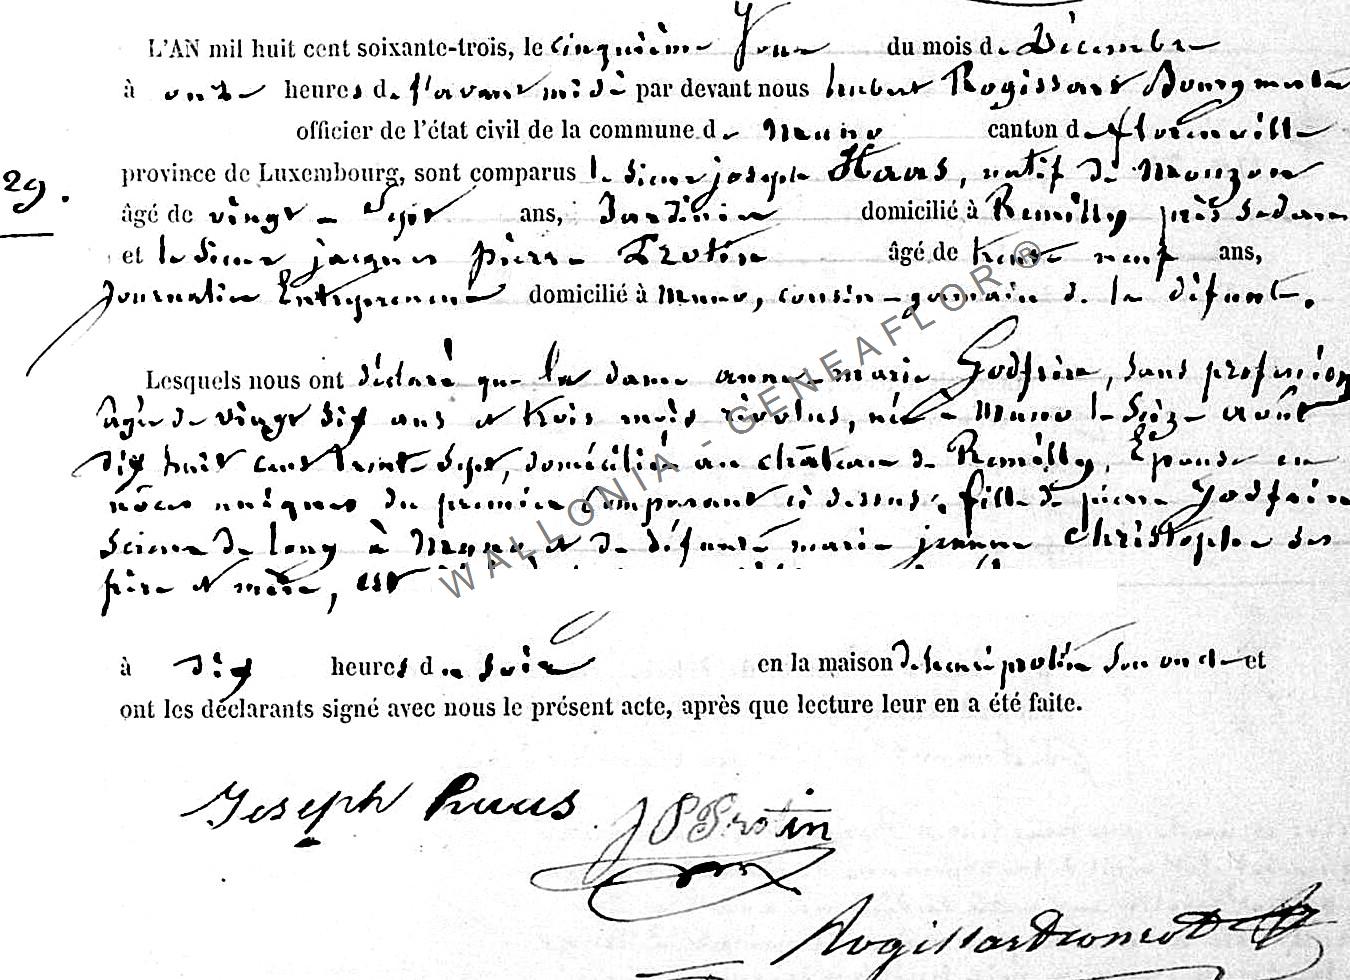 L'AN mil huit cent soixante-trois, le cinquième Jour du mois de Décembre
à onze heures de l'avant midi par devant nous hubert Rogissart Bourgmestre
officier de l'état civil de la commune de Muno canton de florenville
29. province de Luxembourg, sont comparus le sieur joseph Haas, natif de Mouzon
âgé de vingt-Sept ans, Jardinier domicilié à Remilly près Sedan
et le Sieur jacques pierre Protin âgé de trente neuf ans,
Journalier Entrepreneur domicilié à Muno, cousin-germain de la défunte.
Lesquels nous ont déclaré que la dame anne-marie Godfrin, sans profession
âgée de vingt six ans et trois mois révolus, née à Muno le Seize août
dix huit cent trente Sept, domiciliée au château de Remilly, Epouse en
nôces uniques du premier comparant ci dessus, fille de pierre Godfrin
scieur de long à Muno, et de défunte marie jeanne Christophe ses
père et mère, est
à dix heures du soir en la maison de henri protin son oncle et
ont les déclarants signé avec nous le présent acte, après que lecture leur en a été faite.
Joseph Haas J P Protin
Rogissart
WALLONIA - GENEAFLOR ®